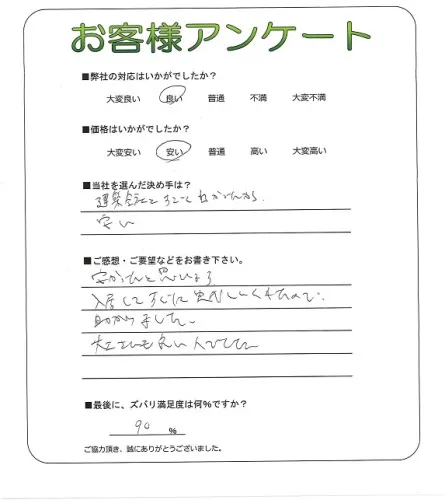 お客様アンケート
■弊社の対応はいかがでしたか？
大変良い 良い 普通 不満 大変不満
■価格はいかがでしたか？
大変安い 安い 普通 高い 大変高い
■当社を選んだ決め手は？
建築会社と
安い
■ご感想・ご要望などをお書き下さい。
安かったと思います
入居してすぐに
助かりました。
大工さんも良い人でした
■最後に、ズバリ満足度は何%ですか？
90 %
ご協力頂き、誠にありがとうございました。